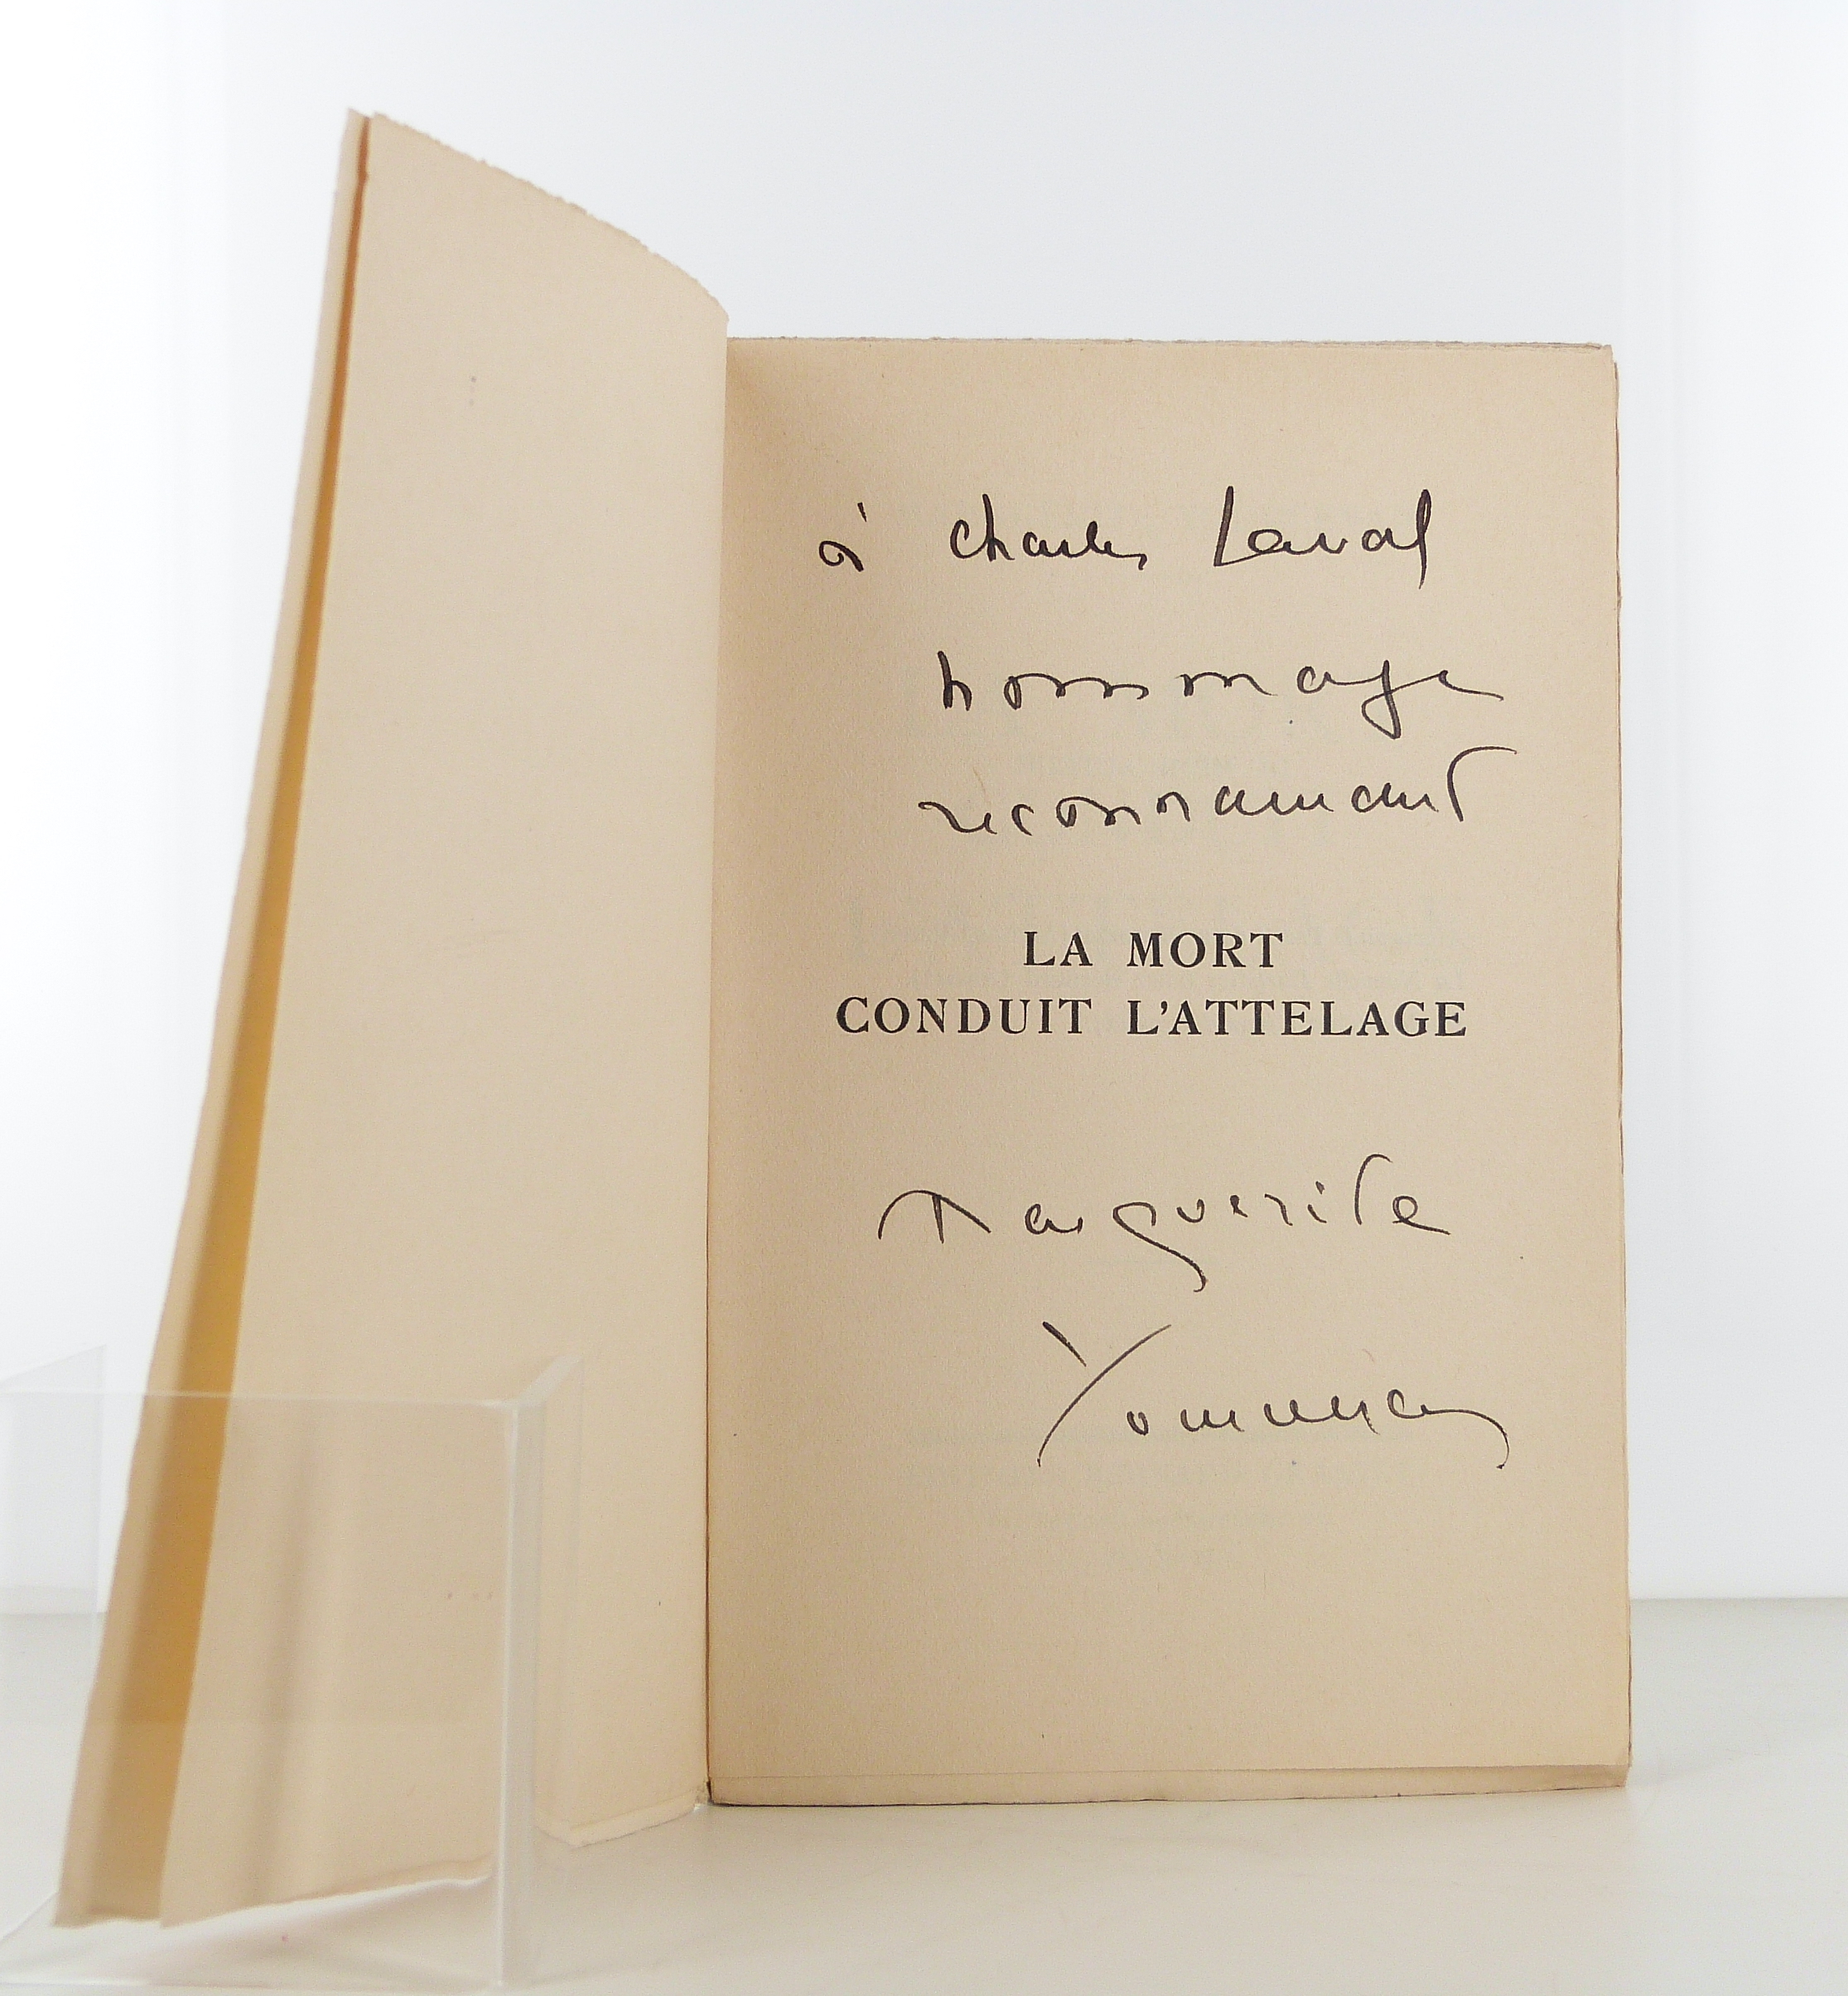 à Charles Laval
hommage
reconnaissant
LA MORT
CONDUIT L'ATTELAGE
Marguerite
Yourcenar